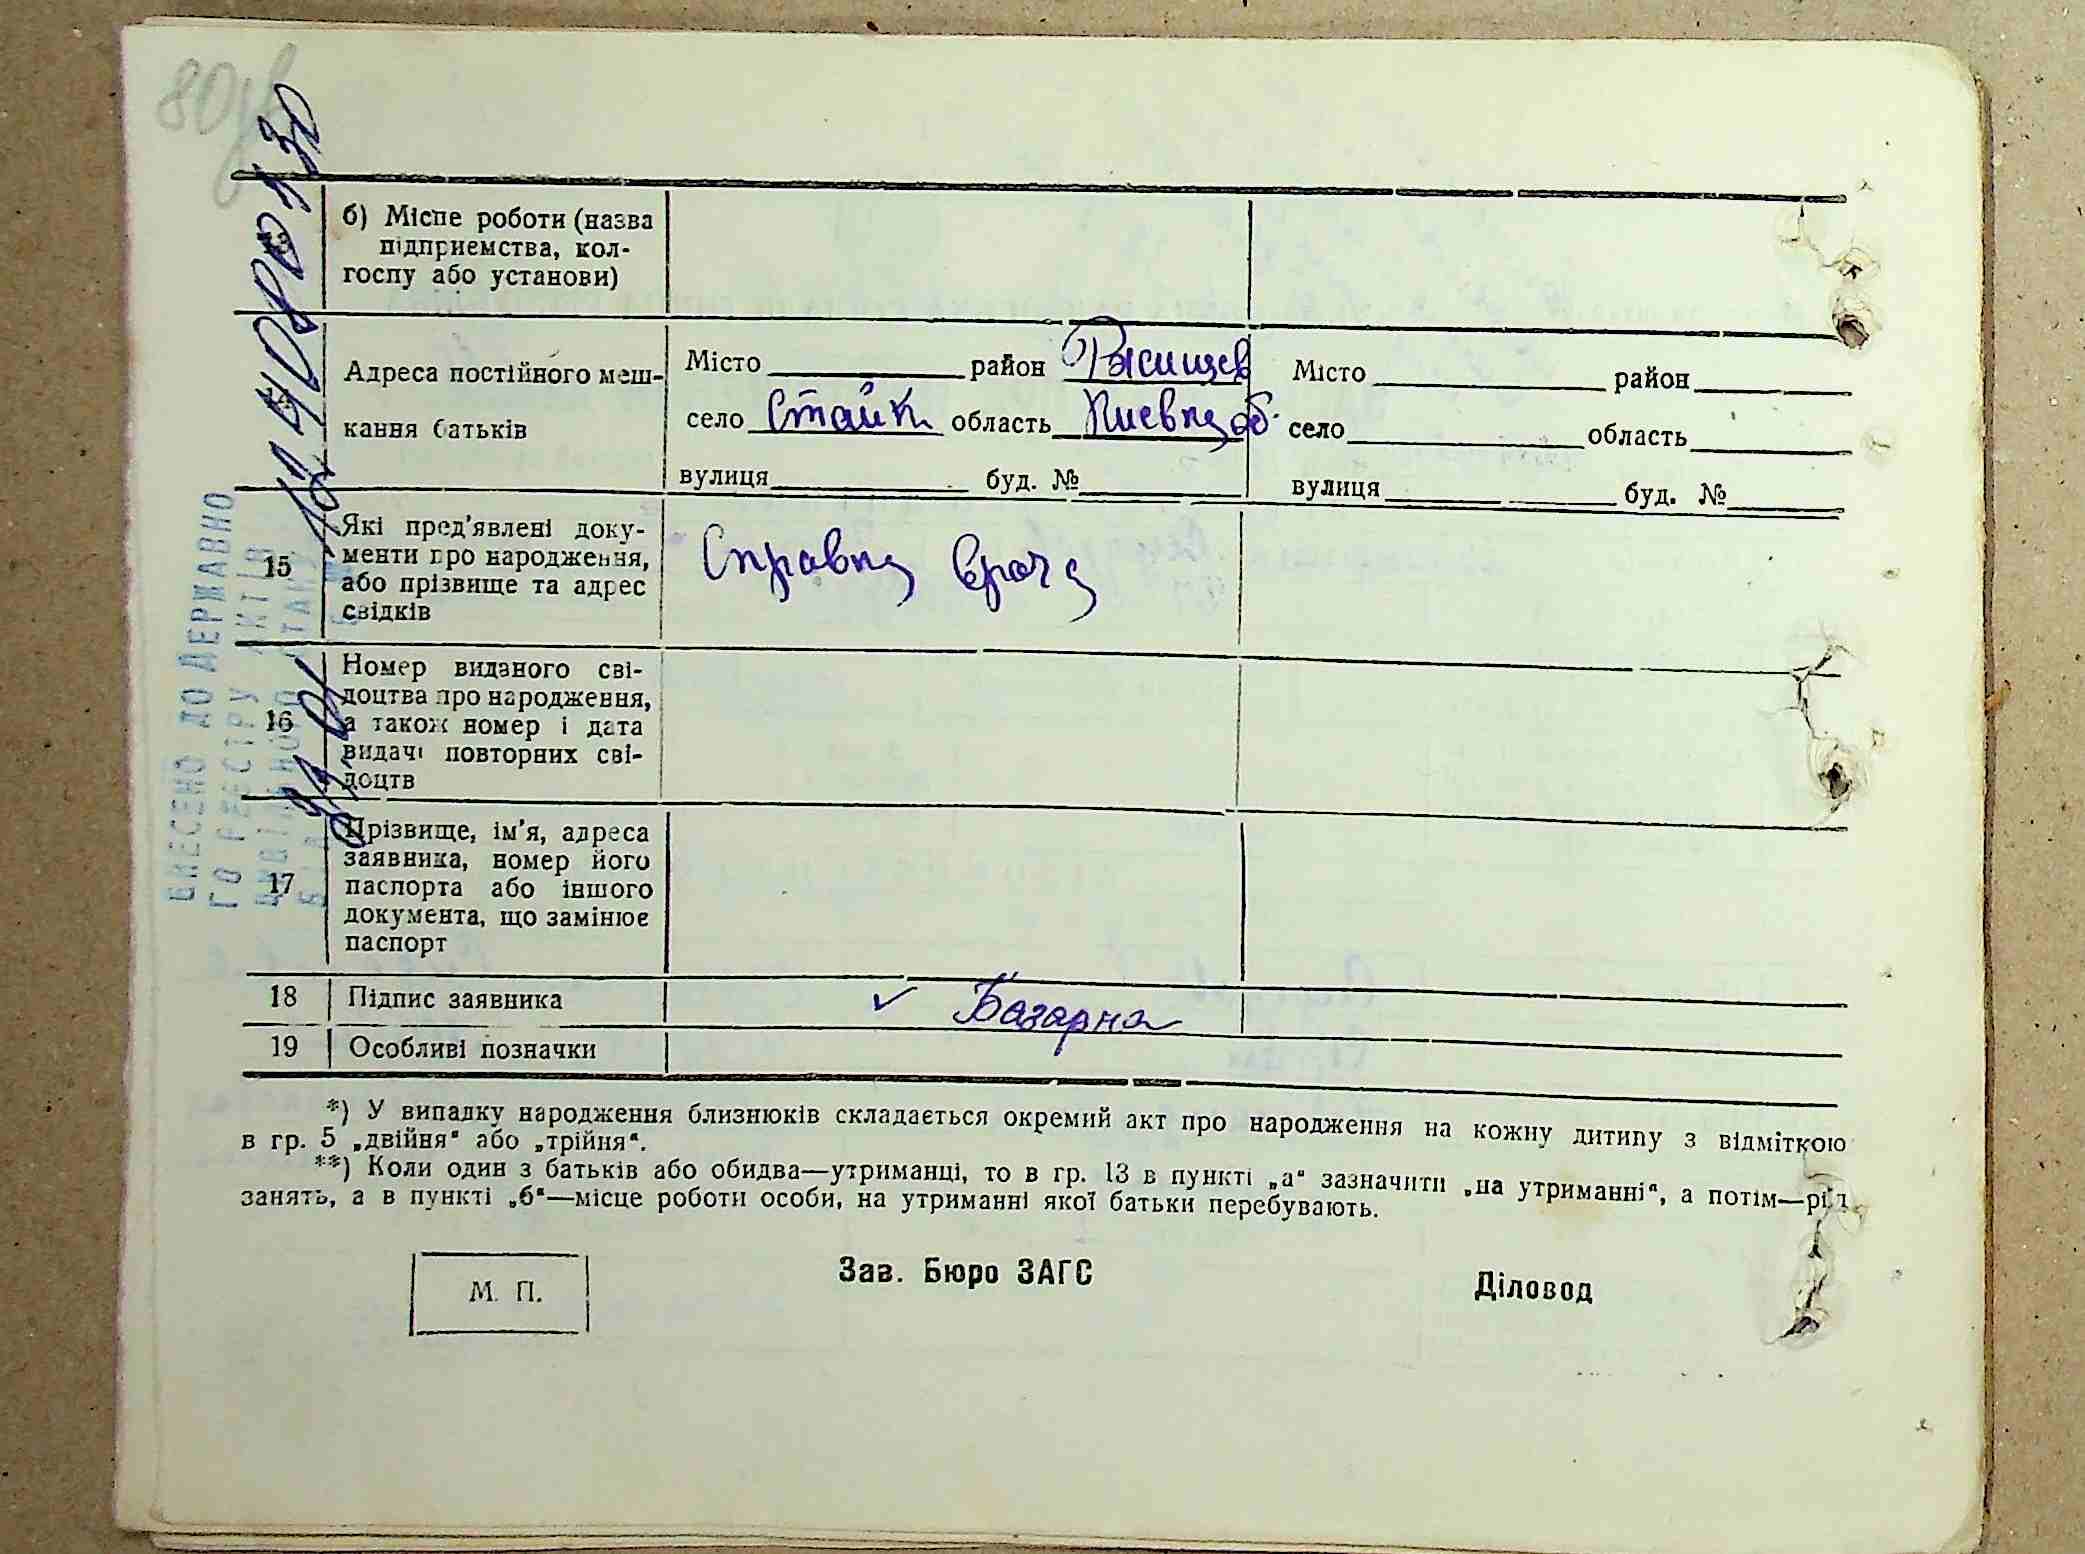 80
б) Місце роботи (назва
підприемства, кол-
госпу або установи)
Адреса постійного меш-
кання батьків
Місто район Ржищев
село Стайк область Киевск об.
вулиця буд. №
Місто район
село область
вулиця буд. №
15
Які пред'явлені доку-
менти про народження,
або прізвище та адрес
свідків
Справка врача
16
Номер виданого сві-
доцтва про народження,
а також номер і дата
видачі повторних сві-
доцтв
17
Прізвище, ім'я, адреса
заявника, номер його
паспорта або іншого
документа, що замінює
паспорт
18 Підпис заявника Базарна
19 Особливі позначки
*) У випадку народження близнюків складається окремий акт про народження на кожну дитину з відміткою
в гр. 5 „двійня“ або „трійня“.
**) Коли один з батьків або обидва—утриманці, то в гр. 13 в пункті „а“ зазначити „на утриманні“, а потім—рід
занять, а в пункті „б“—місце роботи особи, на утриманні якої батьки перебувають.
М. П.
Зав. Бюро ЗАГС
Діловод
ВНЕСЕНО ДО ДЕРЖАВНО
ГО РЕЄСТРУ АКТІВ
ЦИВІЛЬНОГО СТАНУ